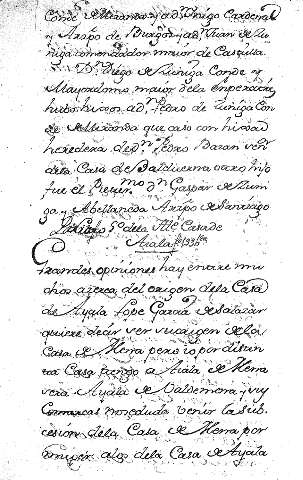 Conde de Miranda y a dⁿ Iñigo Cardenal
y Arzpo de Burgos y a dⁿ Juan de Zu
ñiga comendador maior de Castilla.
Dⁿ Diego de Zuñiga Conde y
Mayordomo maior dela emperatriz
hubo hixos a dⁿ Pedro de Zuñiga Con
de de Miranda que caso con hixa
heredera de dⁿ Pedro Bazan
dela Casa de Balduerna otro hijo
fue el dⁿ Gaspar de Zuñi
ga y Abellaneda Arzpo de Santiago
dela Casa de
Aiala
Grandes opiniones hay entre mu
chos azerca del origen dela Casa
de Ayala Lope Garcia de Salazar
quiere decir ser su origen de la
Casa de Mena pero io por distin
ta Casa tengo a Aiala de Mena
vera Ayala de Valdemora y
Comarcas no ay duda venir la sub
cesion dela Casa de Mena por
algo dela Casa de Ayala